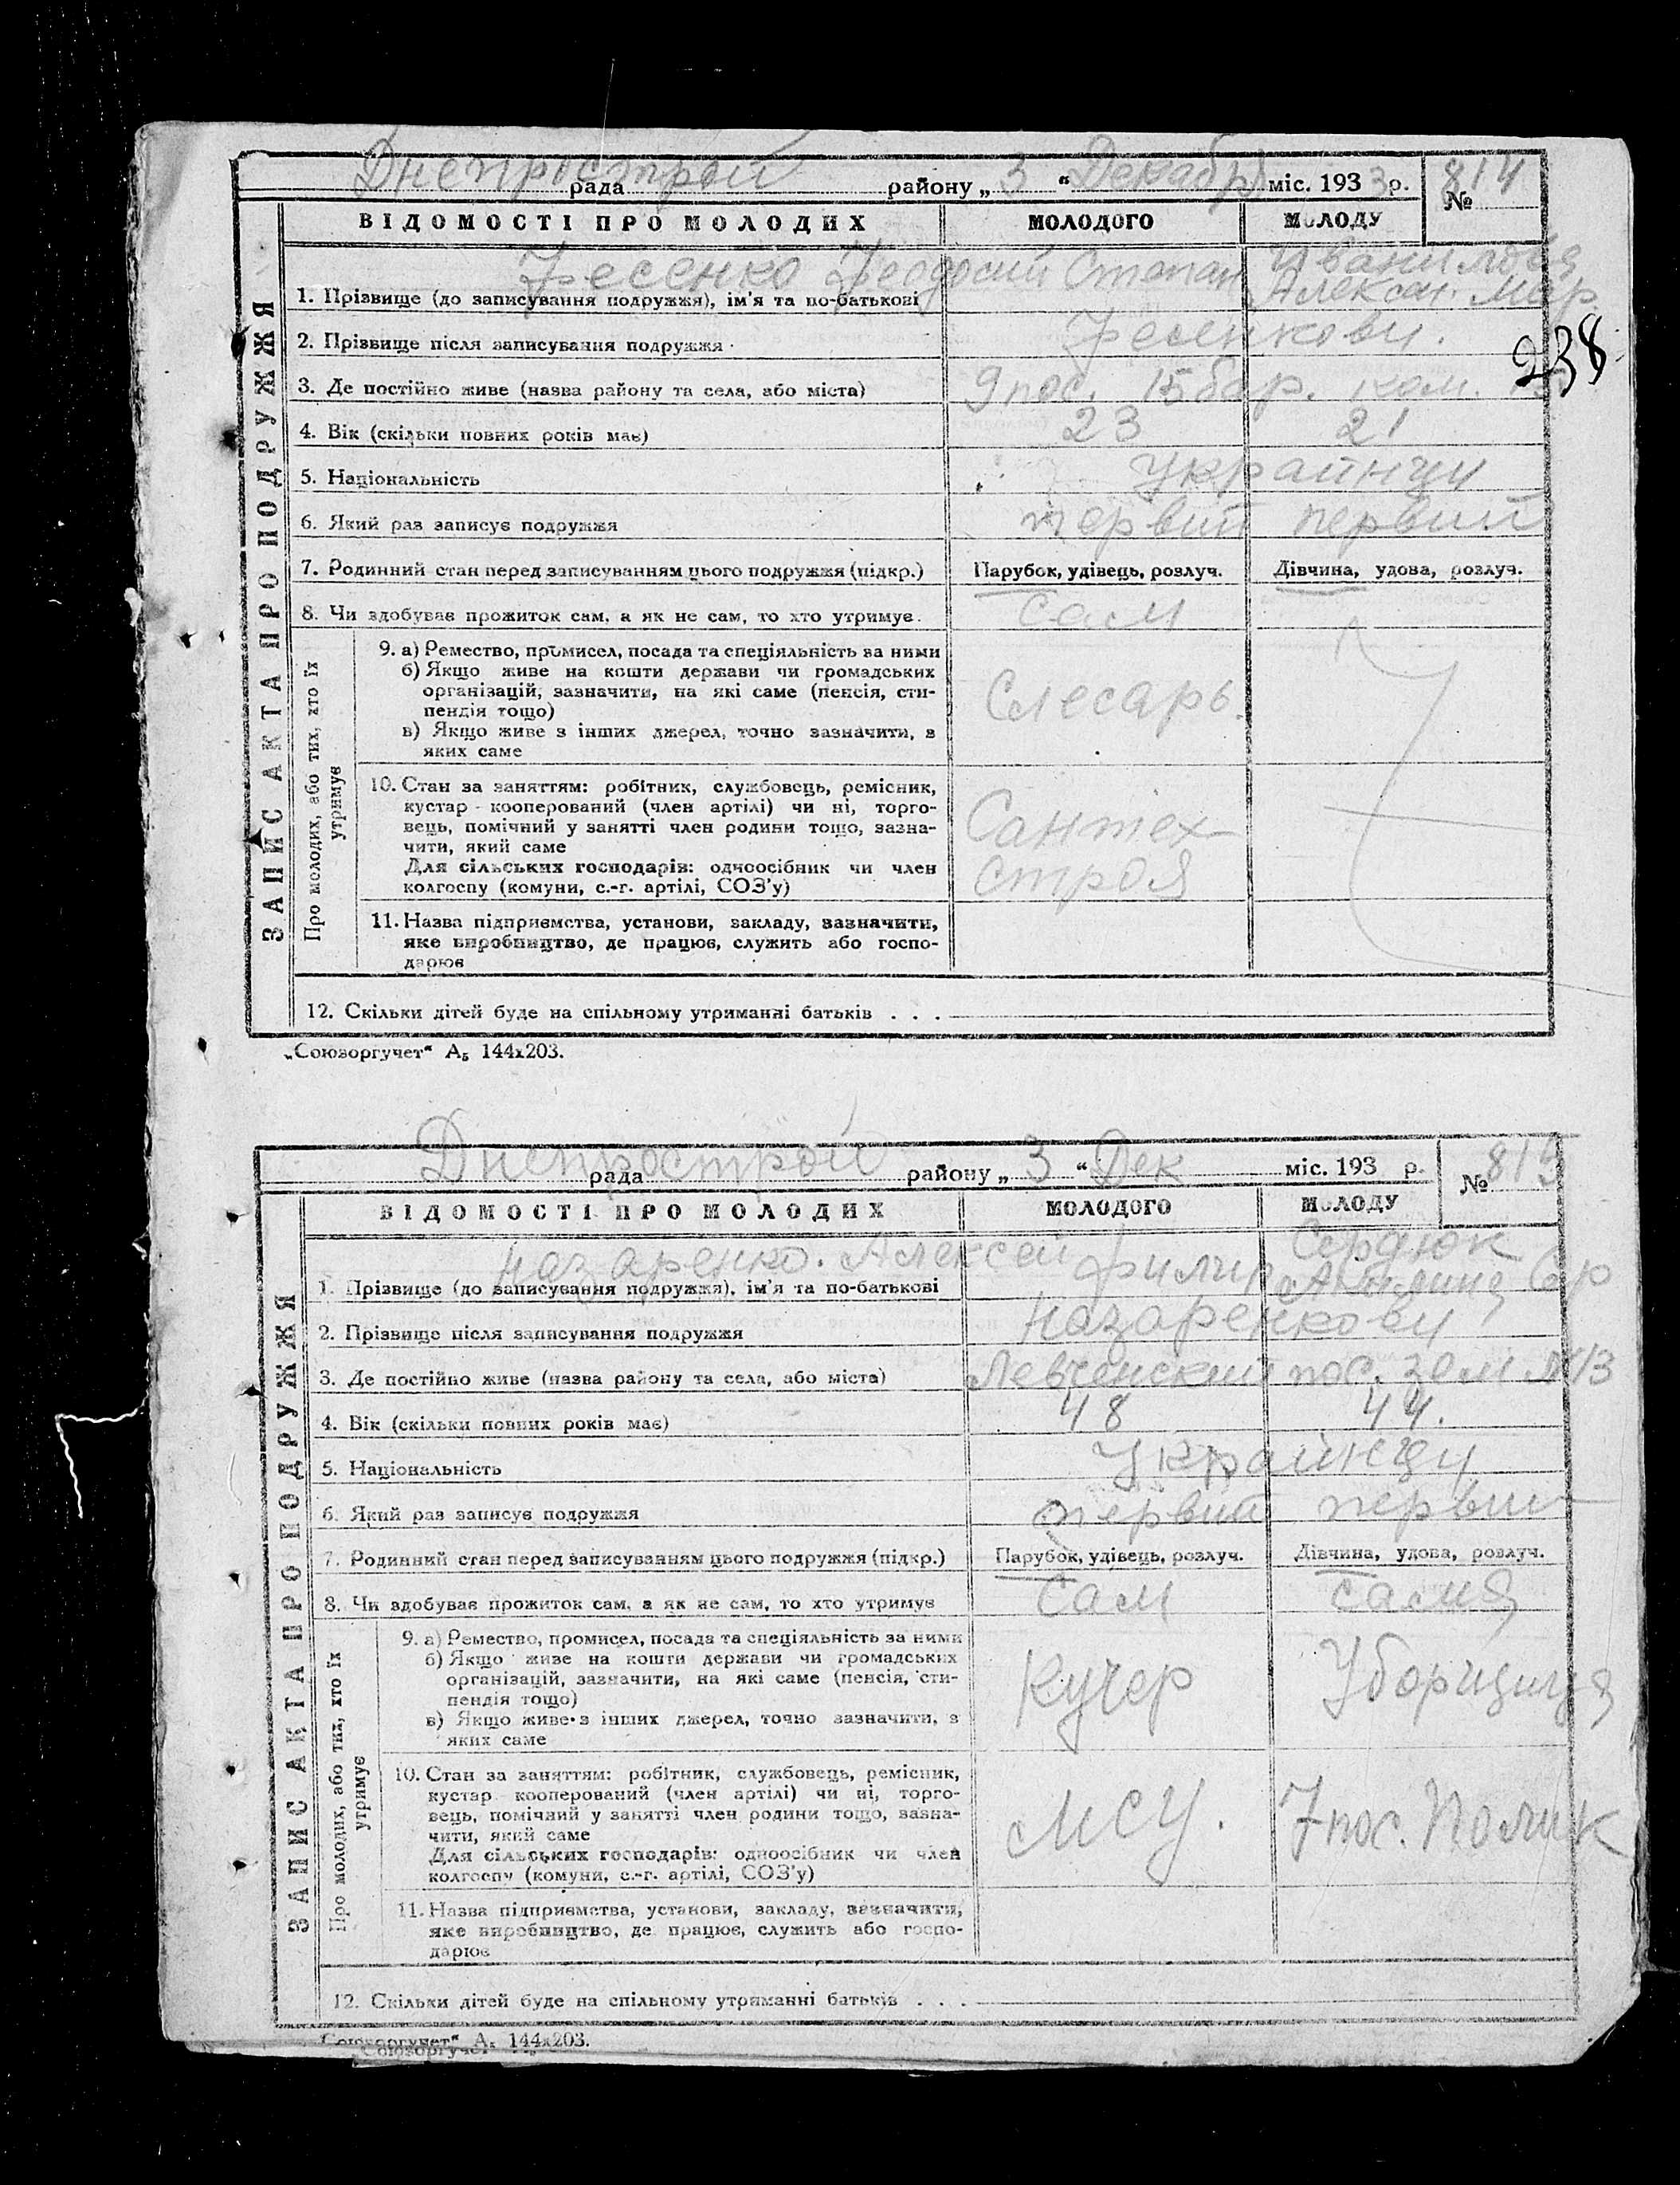 Днепрострой рада району „ 3 “ Декабря міс. 1933 р. № 814
ВІДОМОСТІ ПРО МОЛОДИХ МОЛОДОГО МОЛОДУ
ЗАПИС АКТА ПРО ПОДРУЖЖЯ
Фесенко Феодосий Степан Иванилова
1. Прізвище (до записування подружжя), ім'я та по-батькові Алексан. Мар.
2. Прізвище після записування подружжя Фесенкови.
238
3. Де постійно живе (назва району та села, або міста) 9 пос. 15 бар. ком.
4. Вік (скільки повних років має) 23 21
5. Національність Украинци
6. Який раз записує подружжя первий первий
7. Родинний стан перед записуванням цього подружжя (підкр.) Парубок, удівець, розлуч. Дівчина, удова, розлуч.
8. Чи здобуває прожиток сам, а як не сам, то хто утримує. Сам
Про молодих, або тих, хто їх утримує
9. а) Ремество, промисел, посада та спеціяльність за ними
б) Якщо живе на кошти держави чи громадських
організацій, зазначити, на які саме (пенсія, сти-
пендія тощо) Слесарь.
в) Якщо живе з інших джерел, точно зазначити, з
яких саме
10. Стан за заняттям: робітник, службовець, ремісник,
кустар - кооперований (член артілі) чи ні, торго-
вець, помічний у занятті член родини тощо, зазна- Сантех-
чити, який саме
Для сільських господарів: одноосібник чи член строя
колгоспу (комуни, с.-г. артілі, СОЗ'у)
11. Назва підприємства, установи, закладу, зазначити,
яке виробництво, де працює, служить або госпо-
дарює
12. Скільки дітей буде на спільному утриманні батьків . . .
„Союзоргучет“ А₅ 144х203.
Днепрострой рада району „ 3 “ Дек міс. 193 р. № 815
ВІДОМОСТІ ПРО МОЛОДИХ МОЛОДОГО МОЛОДУ
ЗАПИС АКТА ПРО ПОДРУЖЖЯ
Назаренко. Алексей Филип Сердюк
1. Прізвище (до записування подружжя), ім'я та по-батькові
2. Прізвище після записування подружжя Назаренкови
3. Де постійно живе (назва району та села, або міста) Левченский пос. зем №13
4. Вік (скільки повних років має) 48 44.
5. Національність Украинци
6. Який раз записує подружжя первий первий
7. Родинний стан перед записуванням цього подружжя (підкр.) Парубок, удівець, розлуч. Дівчина, удова, розлуч.
8. Чи здобуває прожиток сам, а як не сам, то хто утримує Сам сама
Про молодих, або тих, хто їх утримує
9. а) Ремество, промисел, посада та спеціяльність за ними
б) Якщо живе на кошти держави чи громадських
організацій, зазначити, на які саме (пенсія, сти- Кучер Уборщиця
пендія тощо)
в) Якщо живе з інших джерел, точно зазначити, з
яких саме
10. Стан за заняттям: робітник, службовець, ремісник,
кустар кооперований (член артілі) чи ні, торго-
вець, помічний у занятті член родини тощо, зазна- МСУ. 7 пос. Полик
чити, який саме
Для сільських господарів: одноосібник чи член
колгоспу (комуни, с.-г. артілі, СОЗ'у)
11. Назва підприємства, установи, закладу, зазначити,
яке виробництво, де працює, служить або госпо-
дарює
12. Скільки дітей буде на спільному утриманні батьків . . .
„Союзоргучет“ А₅ 144х203.